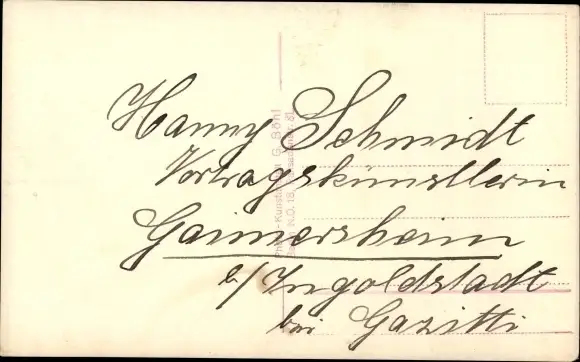 Hanny Schmidt
Vortragskünstlerin
Gaimersheim
b/Ingoldstadt
bei Gazitti
G. Böhl